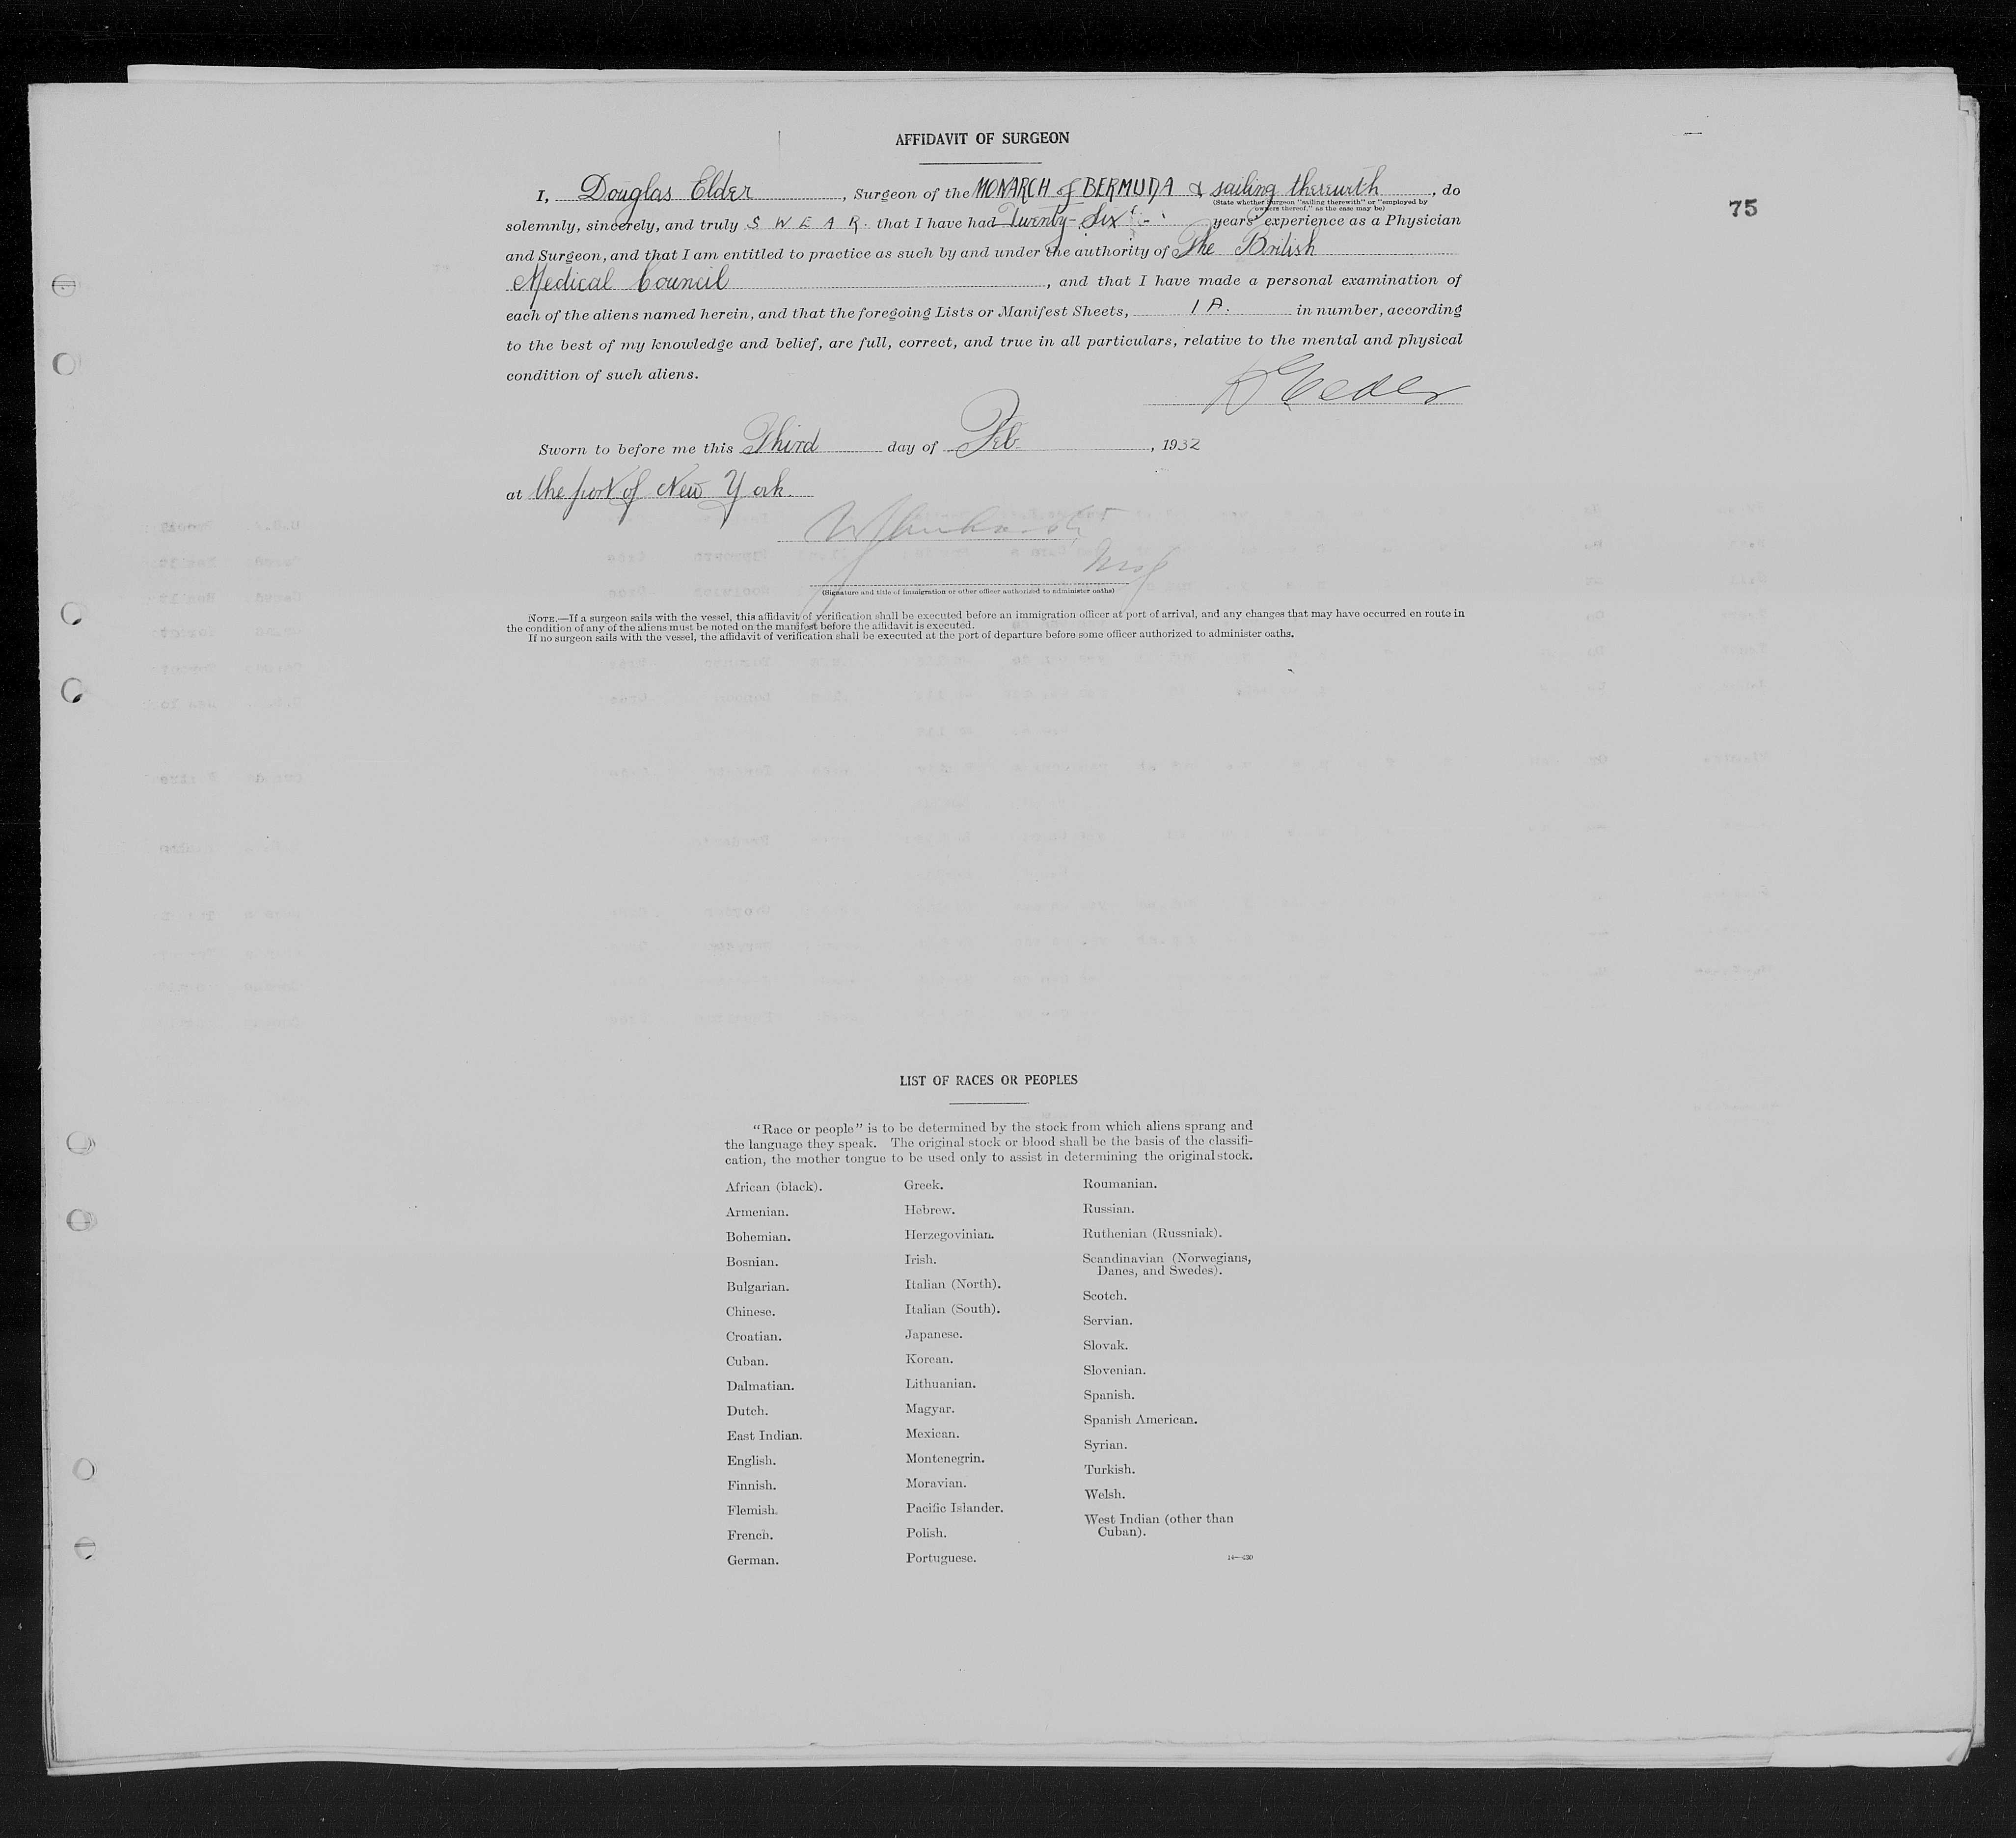 AFFIDAVIT OF SURGEON
75
I, Douglas Elder, Surgeon of the MONARCH of BERMUDA & sailing therewith, do
(State whether Surgeon "sailing therewith" or "employed by
owners thereof," as the case may be)
solemnly, sincerely, and truly S W E A R. that I have had Twenty-Six years' experience as a Physician
and Surgeon, and that I am entitled to practice as such by and under the authority of The British
Medical Council, and that I have made a personal examination of
each of the aliens named herein, and that the foregoing Lists or Manifest Sheets, 1 A. in number, according
to the best of my knowledge and belief, are full, correct, and true in all particulars, relative to the mental and physical
condition of such aliens.
D Elder
Sworn to before me this Third day of Feb., 1932
at the port of New York.
(Signature and title of immigration or other officer authorized to administer oaths)
NOTE.—If a surgeon sails with the vessel, this affidavit of verification shall be executed before an immigration officer at port of arrival, and any changes that may have occurred en route in
the condition of any of the aliens must be noted on the manifest before the affidavit is executed.
If no surgeon sails with the vessel, the affidavit of verification shall be executed at the port of departure before some officer authorized to administer oaths.
LIST OF RACES OR PEOPLES
"Race or people" is to be determined by the stock from which aliens sprang and
the language they speak. The original stock or blood shall be the basis of the classifi-
cation, the mother tongue to be used only to assist in determining the original stock.
African (black).
Armenian.
Bohemian.
Bosnian.
Bulgarian.
Chinese.
Croatian.
Cuban.
Dalmatian.
Dutch.
East Indian.
English.
Finnish.
Flemish.
French.
German.
Greek.
Hebrew.
Herzegovinian.
Irish.
Italian (North).
Italian (South).
Japanese.
Korean.
Lithuanian.
Magyar.
Mexican.
Montenegrin.
Moravian.
Pacific Islander.
Polish.
Portuguese.
Roumanian.
Russian.
Ruthenian (Russniak).
Scandinavian (Norwegians,
Danes, and Swedes).
Scotch.
Servian.
Slovak.
Slovenian.
Spanish.
Spanish American.
Syrian.
Turkish.
Welsh.
West Indian (other than
Cuban).
14—430